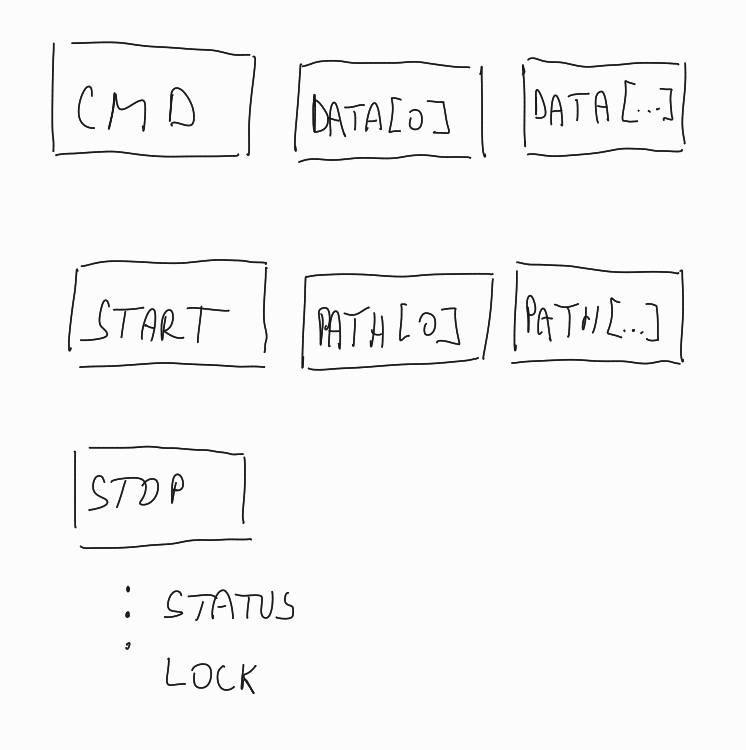 CMD DATA[0] DATA[...]
START PATH[0] PATH[...]
STOP
: STATUS
. LOCK